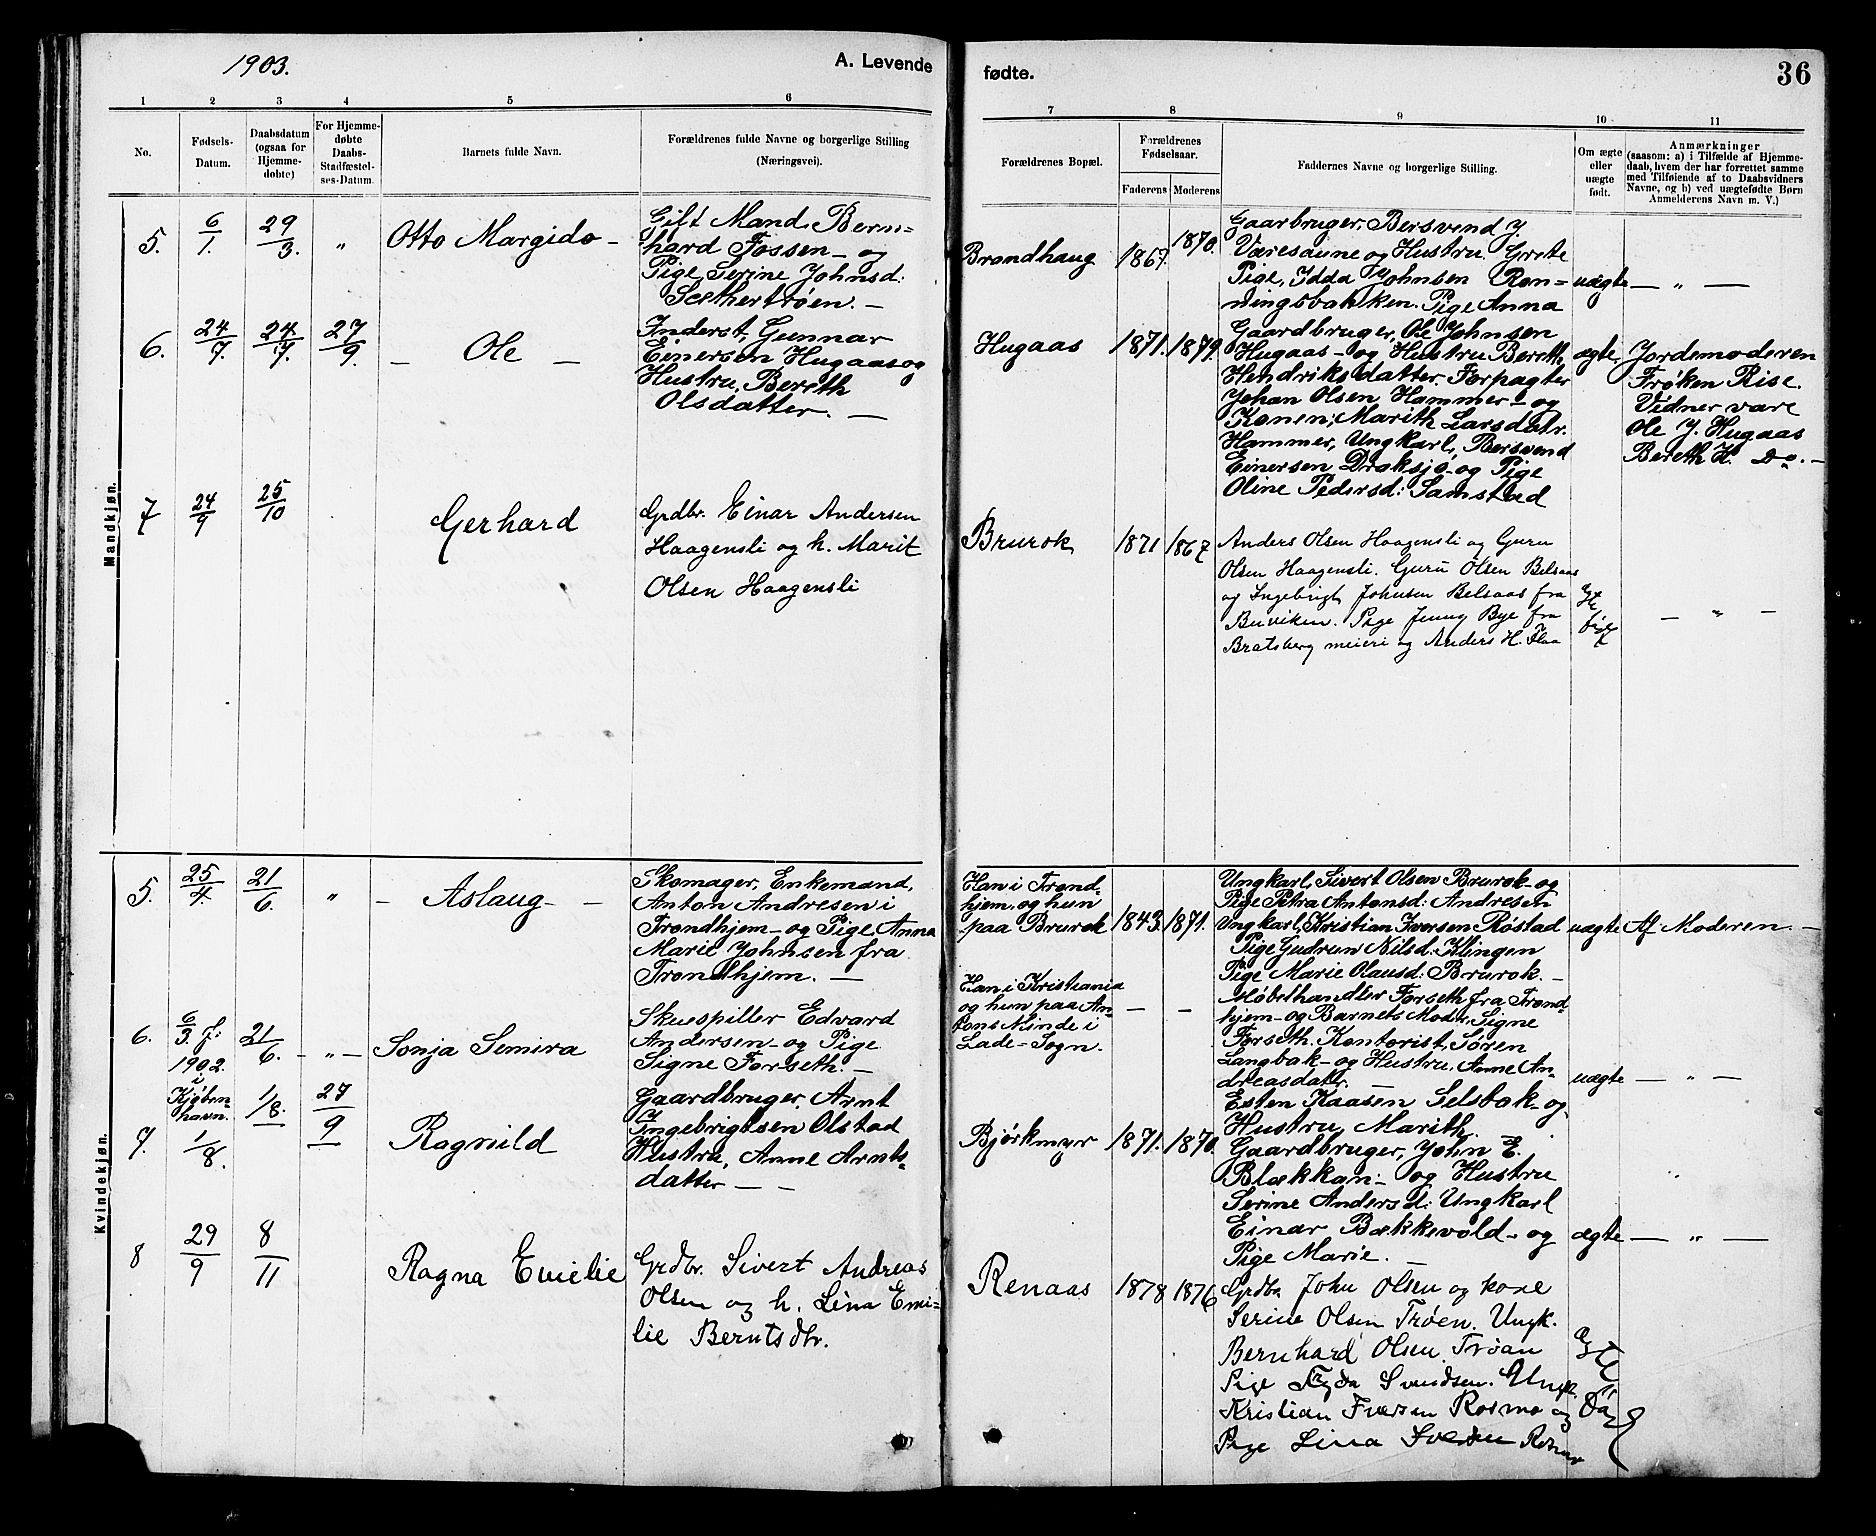 1903.
A. Levende
fødte.
36
1 2 3 4 5 6
7 8 9 10 11
No.
Fødsels-
Datum.
Daabsdatum
(ogsaa for
Hjemme-
døbte)
For Hjemme-
døbte
Daabs-
Stadfæstel-
ses-Datum.
Barnets fulde Navn.
Forældrenes fulde Navne og borgerlige Stilling
(Næringsvei).
Forældrenes Bopæl.
Forældrenes
Fødselsaar.
Faderens
Moderens
Faddernes Navne og borgerlige Stilling.
Om ægte
eller
uægte
født.
Anmærkninger
(saasom: a) i Tilfælde af Hjemme-
daab, hvem der har forrettet samme
med Tilføiende af to Daabsvidners
Navne, og b) ved uægtefødte Børn
Anmelderens Navn m. V.)
Mandkjøn.
5. 6/1. 29/3. " Otto Margido –
Gift Mand, Bern=
hard Fossen – og
Pige, Serine Johnsd:
Sæthertrøen. –
Brandhaug 1867. 1870.
Gaarbruger, Bersvend J.
Væresaune og Hustru Grete
Pige, Ydda Johnsen Røn=
ningsbakken. Pige Anna
uægte – " –
6. 24/7. 24/7. 27/9. – Ole –
Inderst, Gunnar
Einersen Hugaas og
Hustru, Bereth
Olsdatter. –
Hugaas 1871. 1879.
Gaardbruger, Ole Johnsen
Hugaas – og Hustru Bereth
Hendriksdatter. Forpagter
Johan Olsen Hammer – og
Konen, Marith Larsdatr.
Hammer, Ungkarl, Bersvend
Einersen Draksjø – og Pige
Oline Pedersd: Samstad
ægte.
Jordemoderen
Frøken Rise.
Vidner vare
Ole J. Hugaas
Bereth H. Do. –
7 24/9 25/10 Gerhard
Grdbr. Einar Andersen
Haagensli og h. Marit
Olsen Haagensli
Brurok 1871 1867
Anders Olsen Haagensli og Guru
Olsen Haagensli. Guru Olsen Belsaas
og Ingebrigt Johnsen Belsaas fra
Buviken. Pige Jenny Bye fra
Bratsberg meieri og Anders H. Flaa
– " –
Kvindekjøn.
5. 25/4. 21/6. " – Aslaug – –
Skomager, Enkemand,
Anton Andresen i
Trondhjem – og Pige, Anna
Marie Johnsen fra
Trondhjem. –
Han i Trond-
hjem, og hun
paa Brurok 1843. 1871.
Ungkarl, Sivert Olsen Brurok – og
Pige Petra Antonsd: Andresen
Ungkarl, Kristian Iversen Røstad
Pige Gudrun Nilsd: Klingen
Pige Marie Olausd: Brurok. –
uægte Af Moderen. –
6. 6/3. f: 1902. i Kjøben-
havn. 21/6. – " – Sonja Semira
Skuespiller Edvard
Andersen – og Pige
Signe Forseth. –
Han i Kristiania
og hun paa An-
tons Minde i
Lade – Sogn. – –
Møbelhandler Forseth fra Trond-
hjem – og Barnets Moder, Signe
Forseth. Kontorist, Søren
Langbak – og Hustru, Anne An-
dreasdatr. –
uægte – " –
7. 1/8. 1/8. 27/9 Ragnild
Gaardbruger, Arnt
Ingebrigtsen Olstad
Hustru, Anne Arnts-
datter – –
Bjørkmyr 1871. 1870.
Esten Kaasen Selsbak – og
Hustru, Marith.
Gaardbruger, John E.
Blækkan – og Hustru
Serine Andersd: Ungkarl
Einar Bækkevold – og
Pige Marie. –
ægte – " –
8 29/9 8/11 Ragna Emelie
Grdbr. Sivert Andreas
Olsen og h. Lina Emi-
lie Berntsdtr.
Renaas 1878 1876
Grdbr. John Olsen og kone
Serine Olsen Trøen. Ungk.
Bernhard Olsen Trøan
Pige Svendsen. Ungk.
Kristian Iversen Rosmo og
Pige Lina